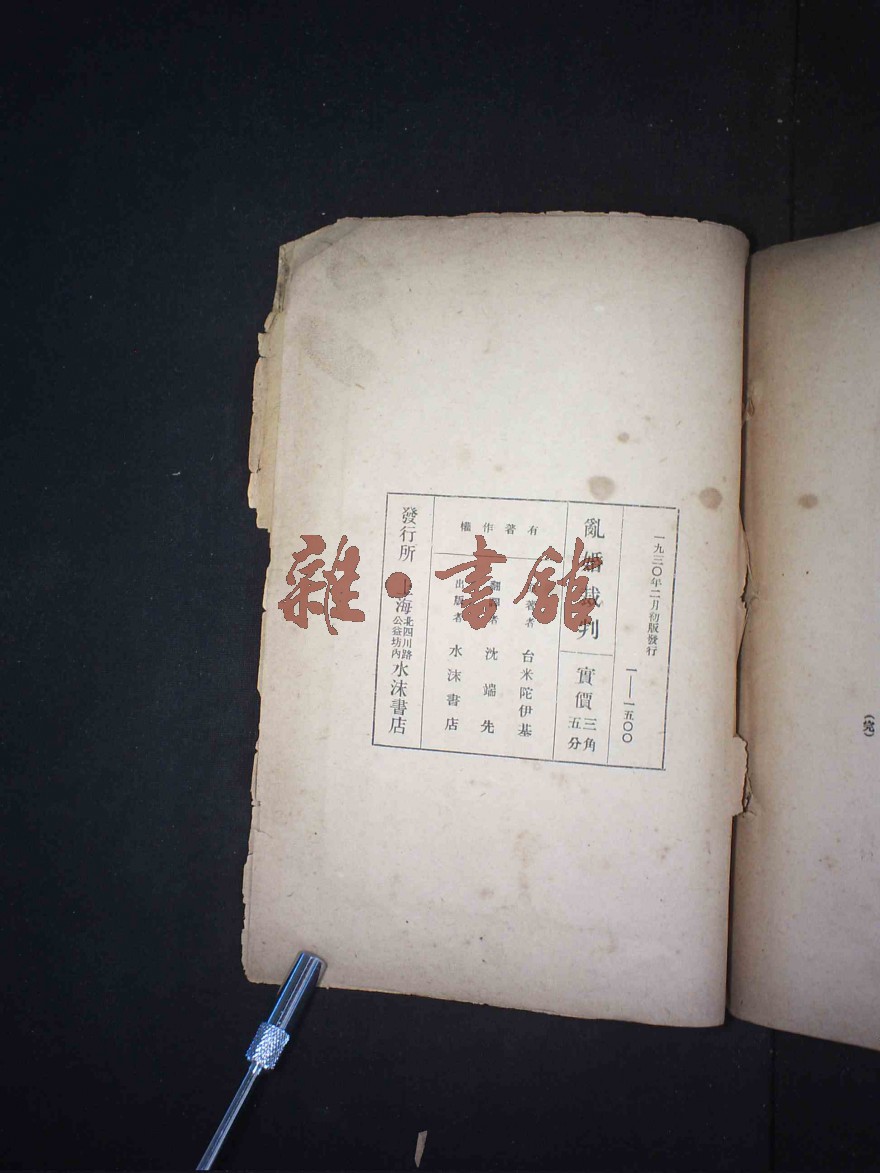 (完)
一九三〇年二月初版發行
一——一五〇〇
亂婚裁判
實價三角五分
有著作權
著者 台米陀伊基
翻譯者 沈端先
出版者 水沫書店
發行所 上海北四川路公益坊內水沫書店
雜·書館